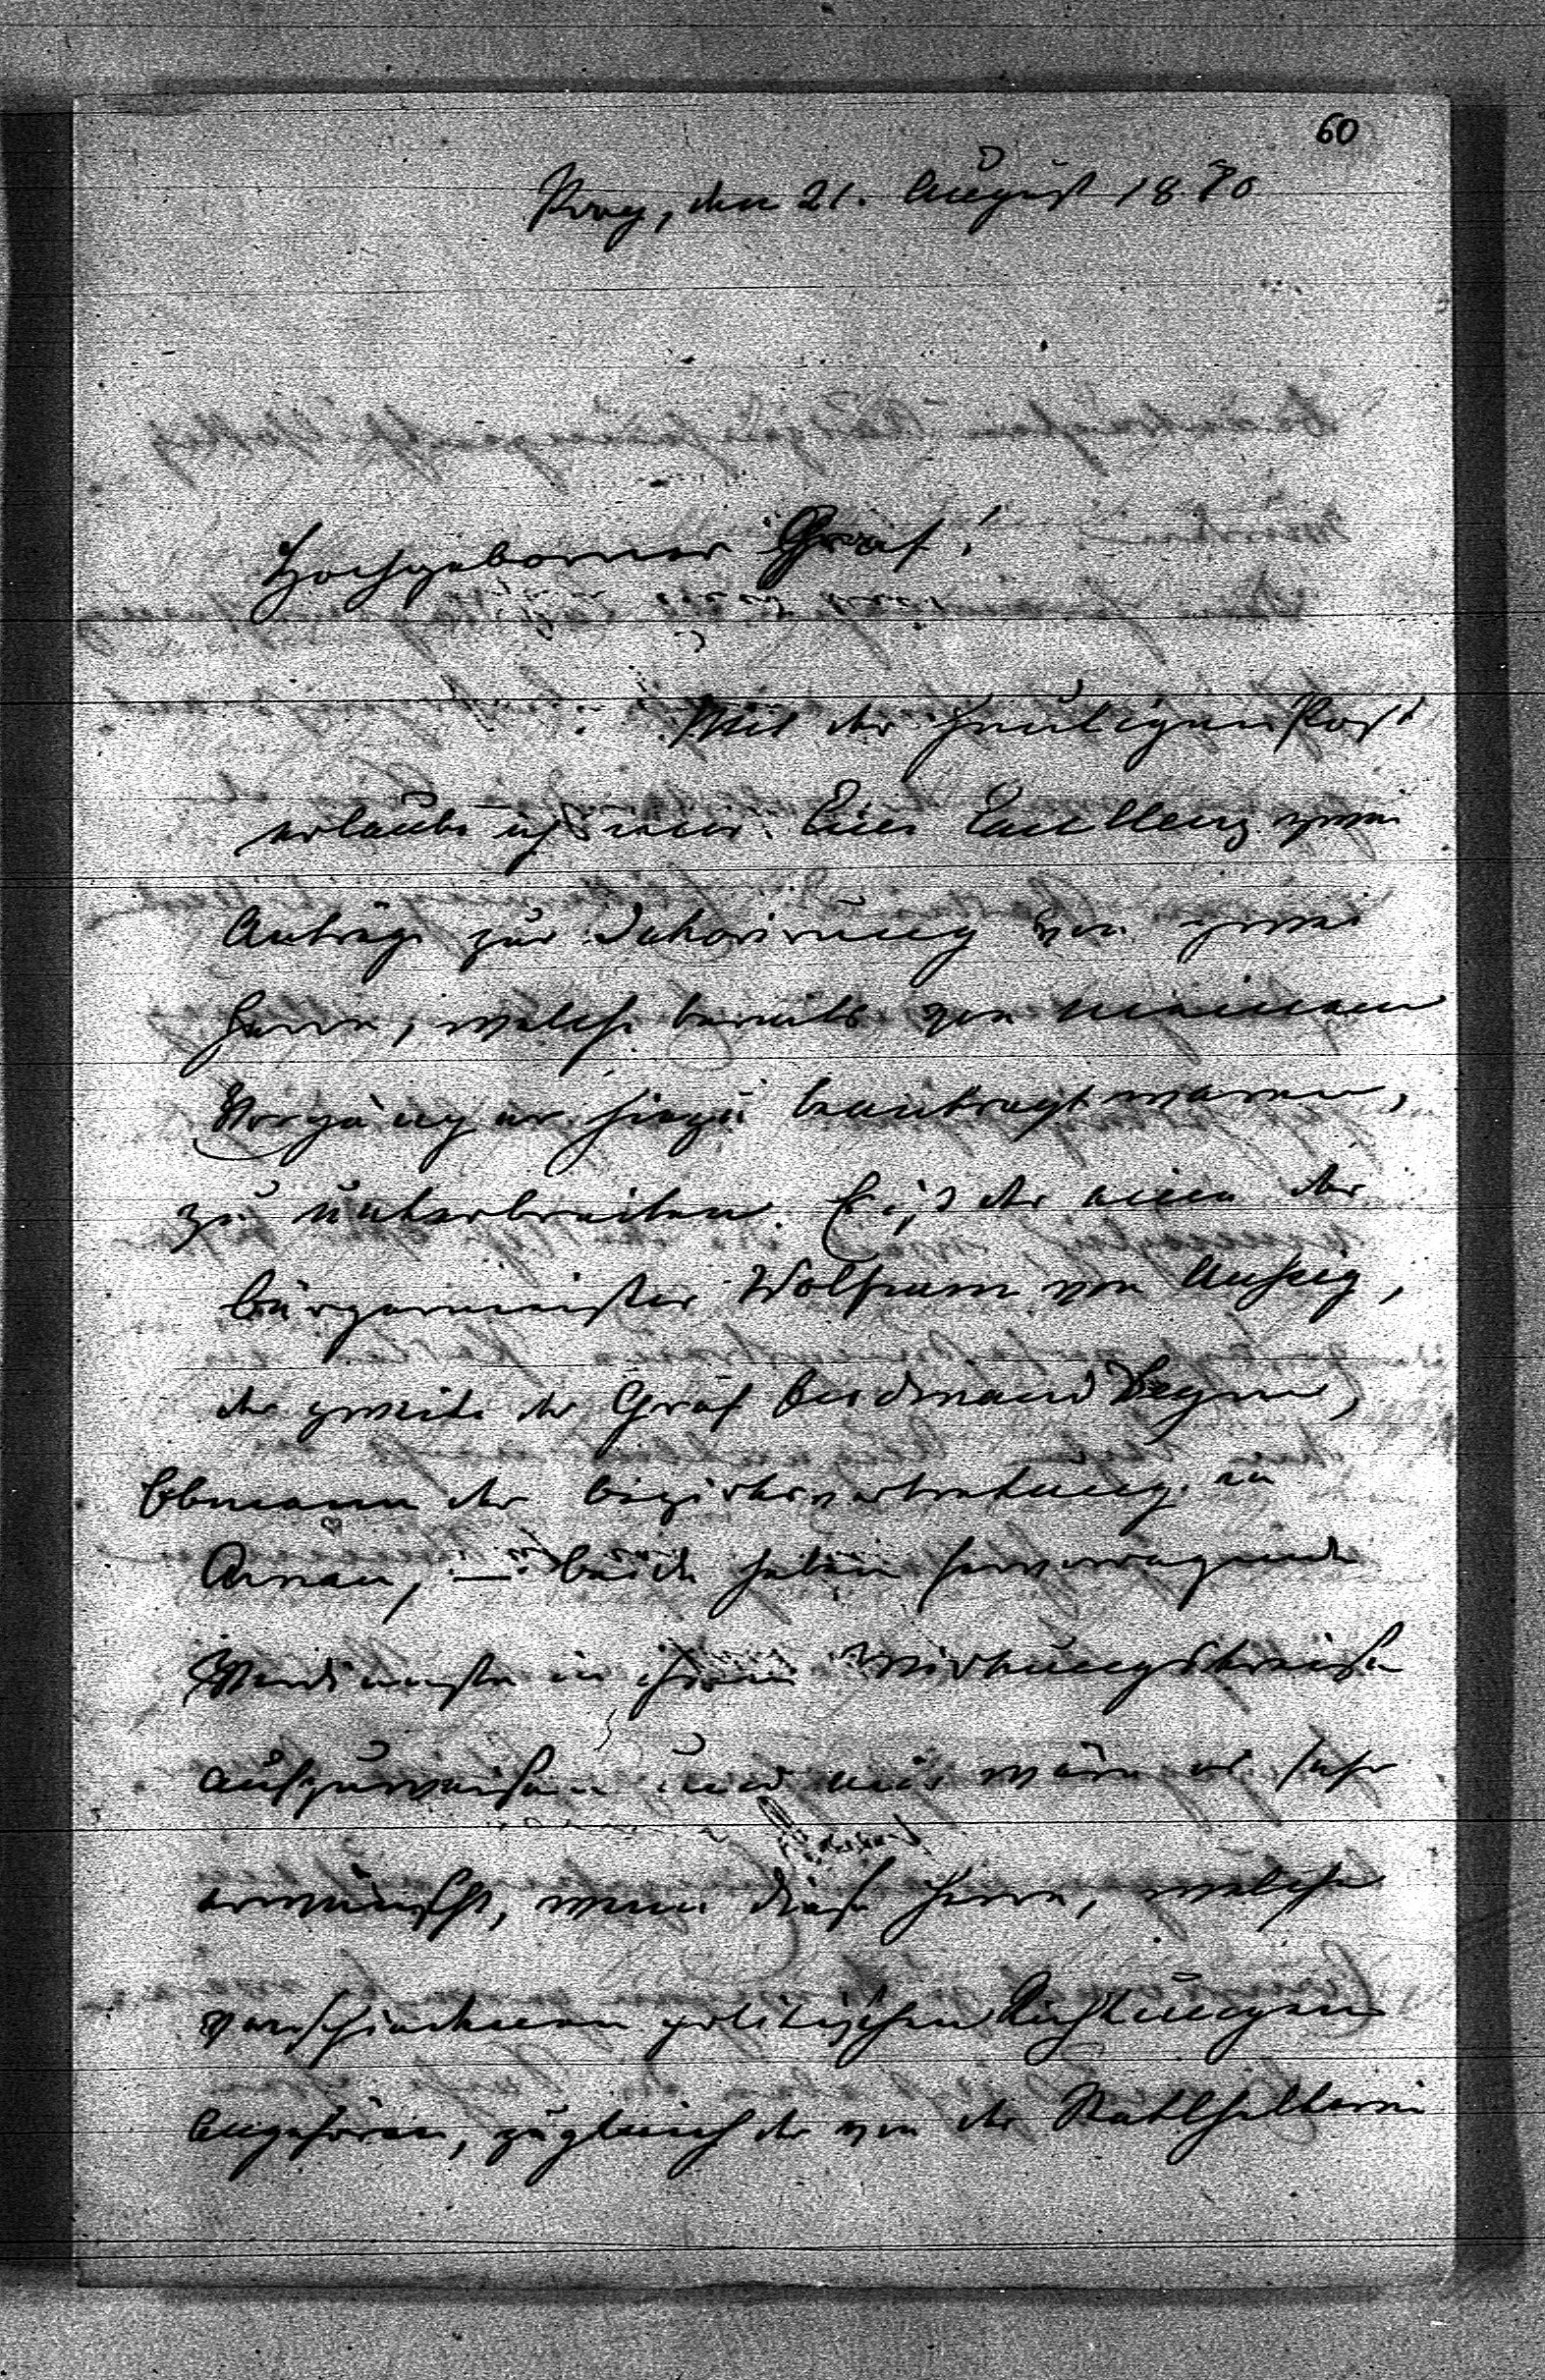 60
Prag, den 21. August 1870
Hochgeborner Graf!
Mit der heutigen Post
erlaube ich mir Euer Excellenz zwei
Anträge zur Dekorirung von zwei
Herrn, welche bereits von meinem
Vorgänger hiezu beantragt waren,
zu unterbreiten. Es ist der eine der
Bürgermeister Wolfrum von Aussig,
der zweite der Graf Deym,
Obmann der Bezirksvertretung in
Arnau, — beide haben hervorragende
Verdienste in ihren Wirkungskreisen
aufzuweisen und mir wäre es sehr
erwünscht, wenn diese Herrn, welche
verschiedenen politischen Richtungen
angehören, zugleich der von der Statthalterei